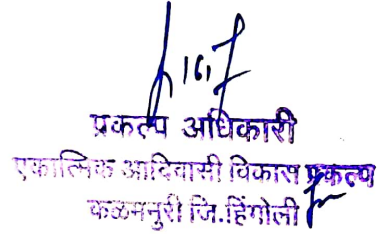 प्रकल्प अधिकारी
एकात्मिक आदिवासी विकास प्रकल्प
कळमनुरी जि.हिंगोली